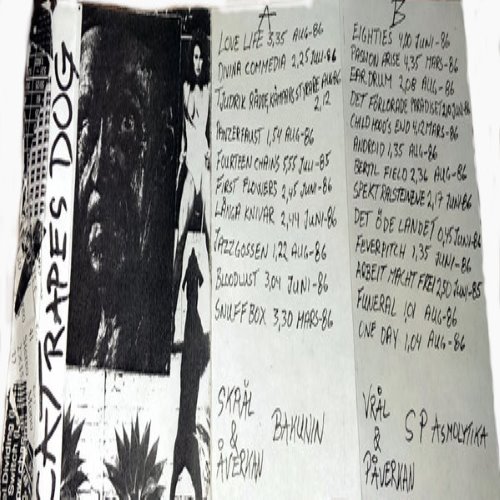 CAT RAPES DOG
A
LOVE LIFE 3,35 AUG-86
DIVINA COMMEDIA 2,25 JULI-86
TJUDRIK RÄDDE KÄMPARS STYRARE AUG-86
2,12
PANZERFAUST 1,54 AUG-86
FOURTEEN CHAINS 5,55 JULI-85
FIRST FLOWERS 2,45 JUNI-86
LÅNGA KNIVAR 2,44 JUNI-86
JAZZGOSSEN 1,22 AUG-86
BLOODLUST 3,04 JUNI-86
SNUFF BOX 3,30 MARS-86
SKRÅL
&
ÅVERKAN
BAKUNIN
B
EIGHTIES 4,00 JUNI-86
PASHION ARISE 4,35 MARS-86
EARDRUM 2,08 AUG-86
DET FÖRLORADE PARADISET 2,00 JUNI-86
CHILDHOOD'S END 4,12 MARS-86
ANDROID 1,35 AUG-86
BERTIL FIELD 2,36 AUG-86
SPEKTRALSTENENE 2,17 JUNI-86
DET ÖDE LANDET 0,45 JUNI-86
FEVERPITCH 1,35 JUNI-86
ARBEIT MACHT FREI 2,50 JUNI-85
FUNERAL 1,01 AUG-86
ONE DAY 1,04 AUG-86
VRÅL
&
PÅVERKAN
SP ASMOLYTIKA